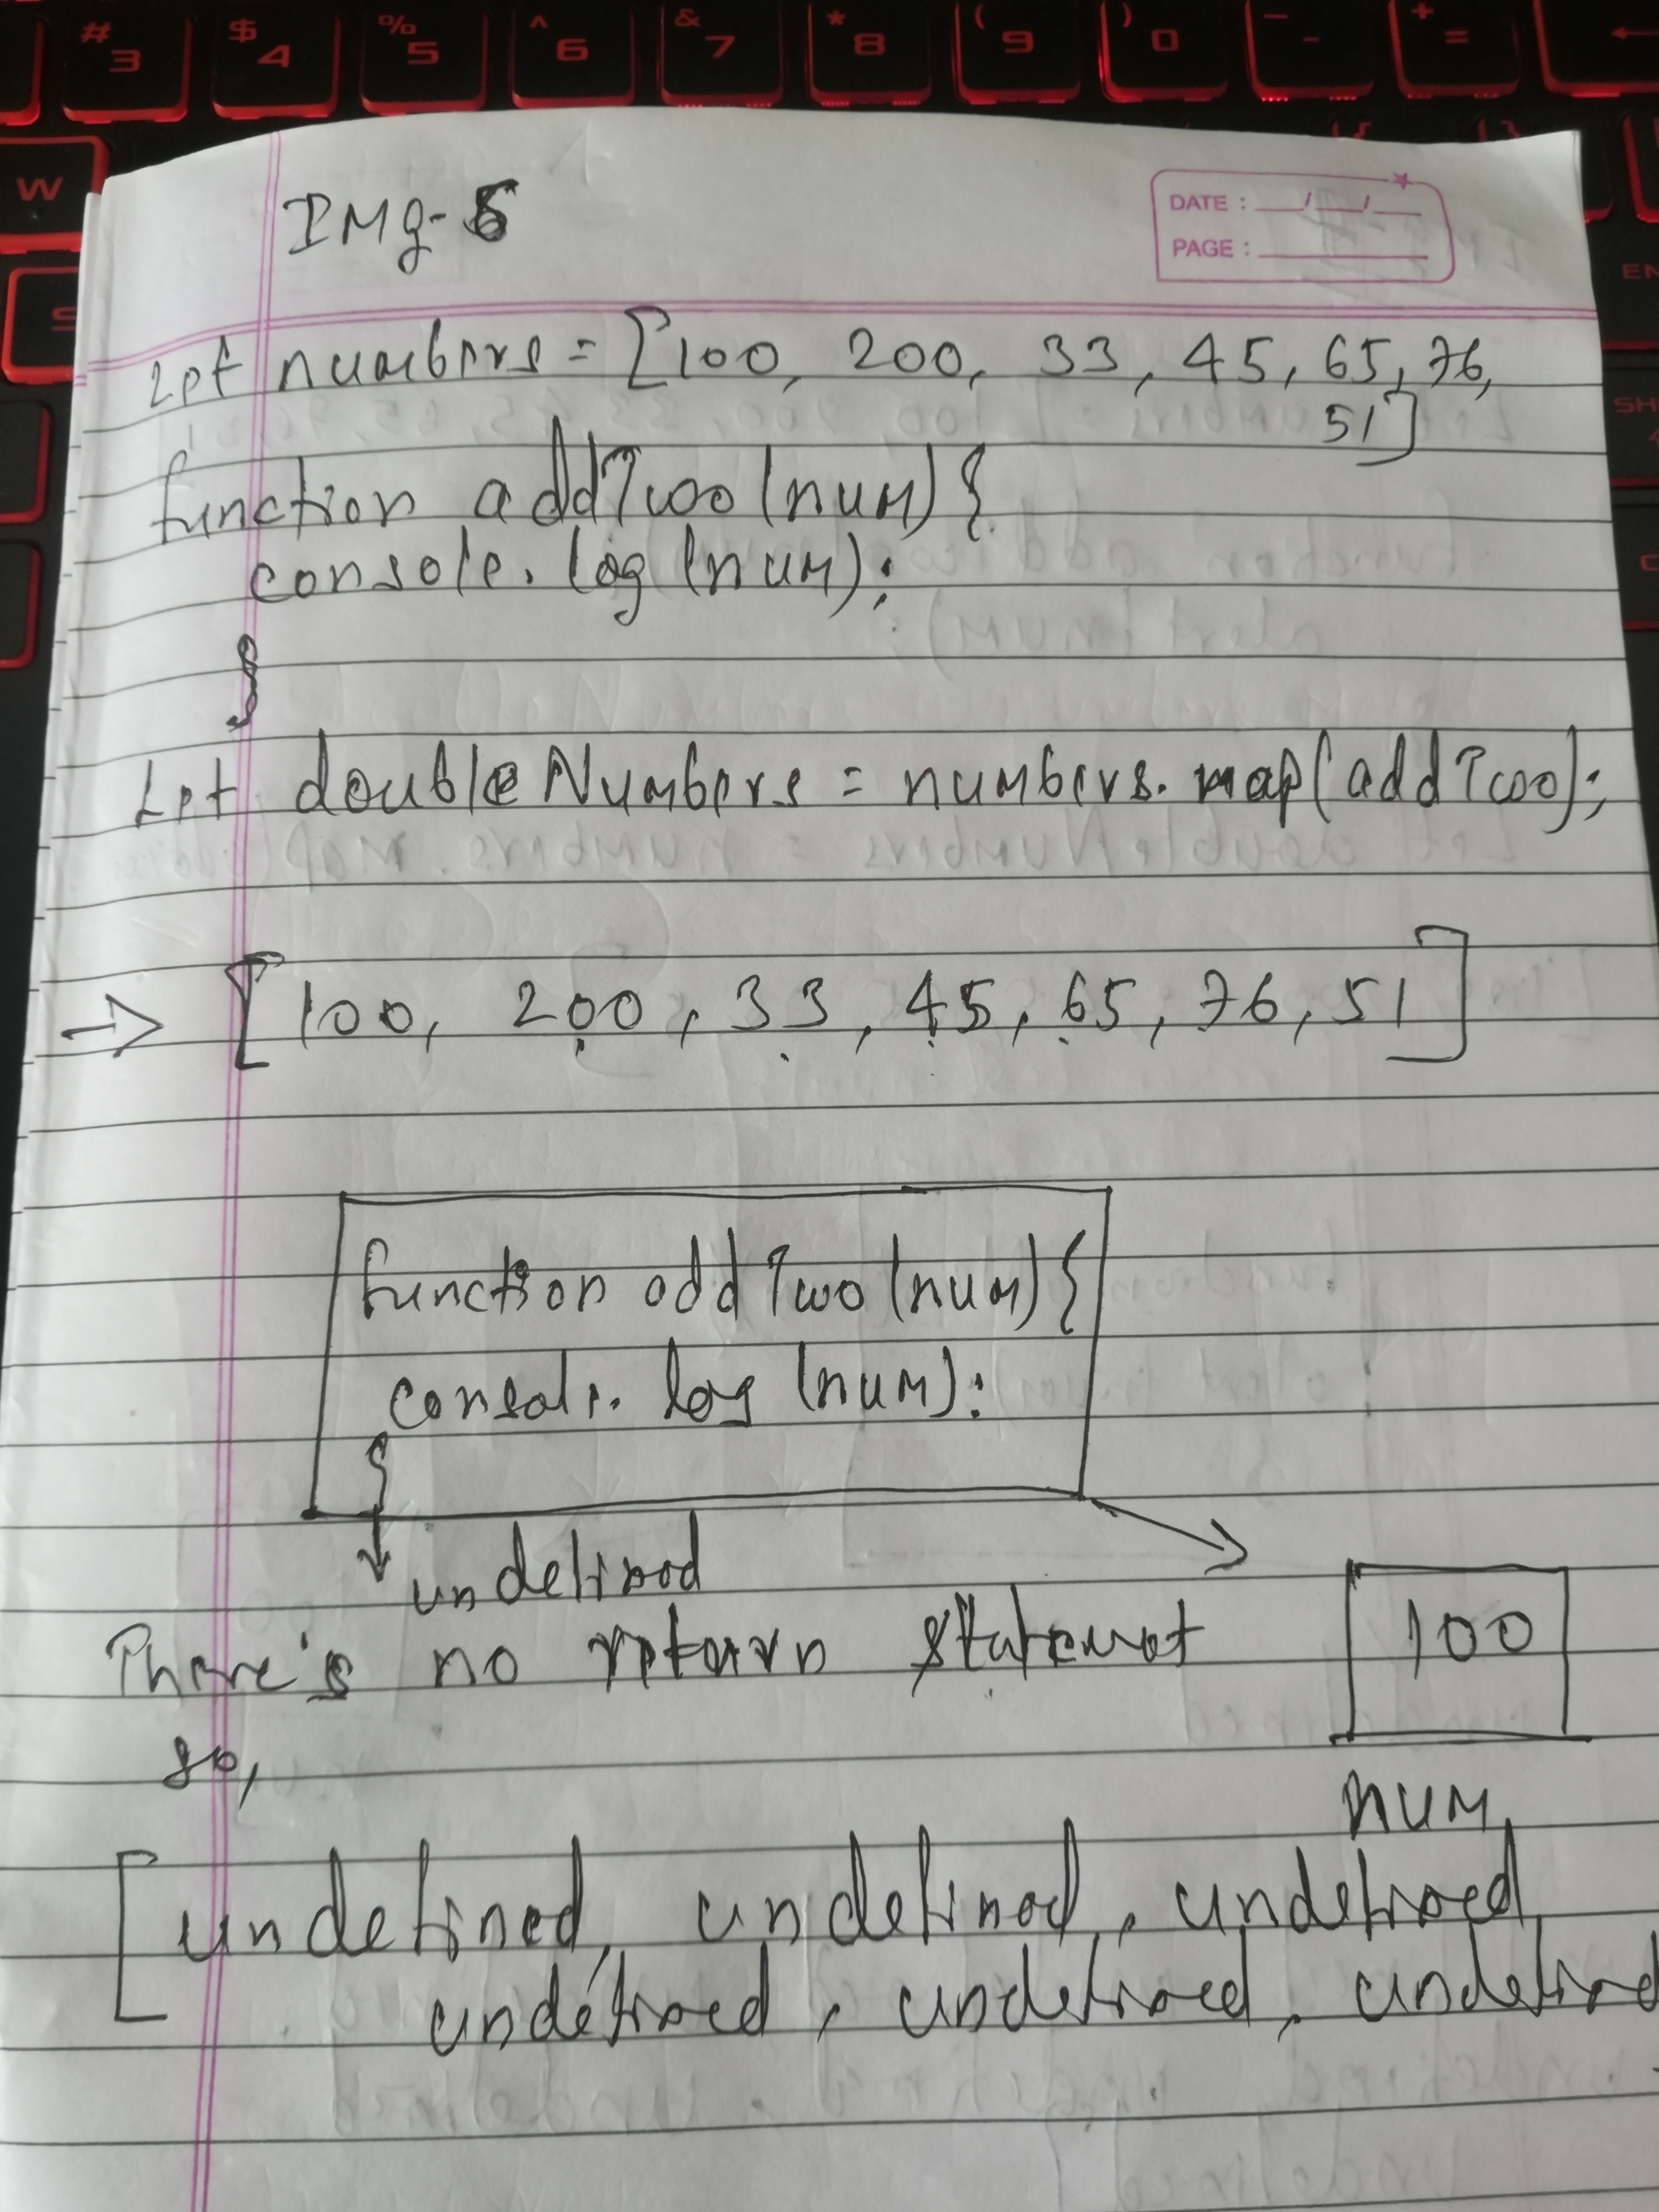 # 3
$ 4
% 5
^ 6
& 7
* 8
( 9
) 0
- -
+ =
W
S
IMg-5
DATE : __/__/__
PAGE :
Let numbers = [100, 200, 33, 45, 65, 76,
51]
function addTwo (num) {
console.log (num);
}
Let doubleNumbers = numbers.map(addTwo);
→ [100, 200, 33, 45, 65, 76, 51]
function addTwo (num) {
console.log (num);
}
undefined
There's no return statement
100
so,
num
[undefined, undefined, undefined,
undefined, undefined, undefined